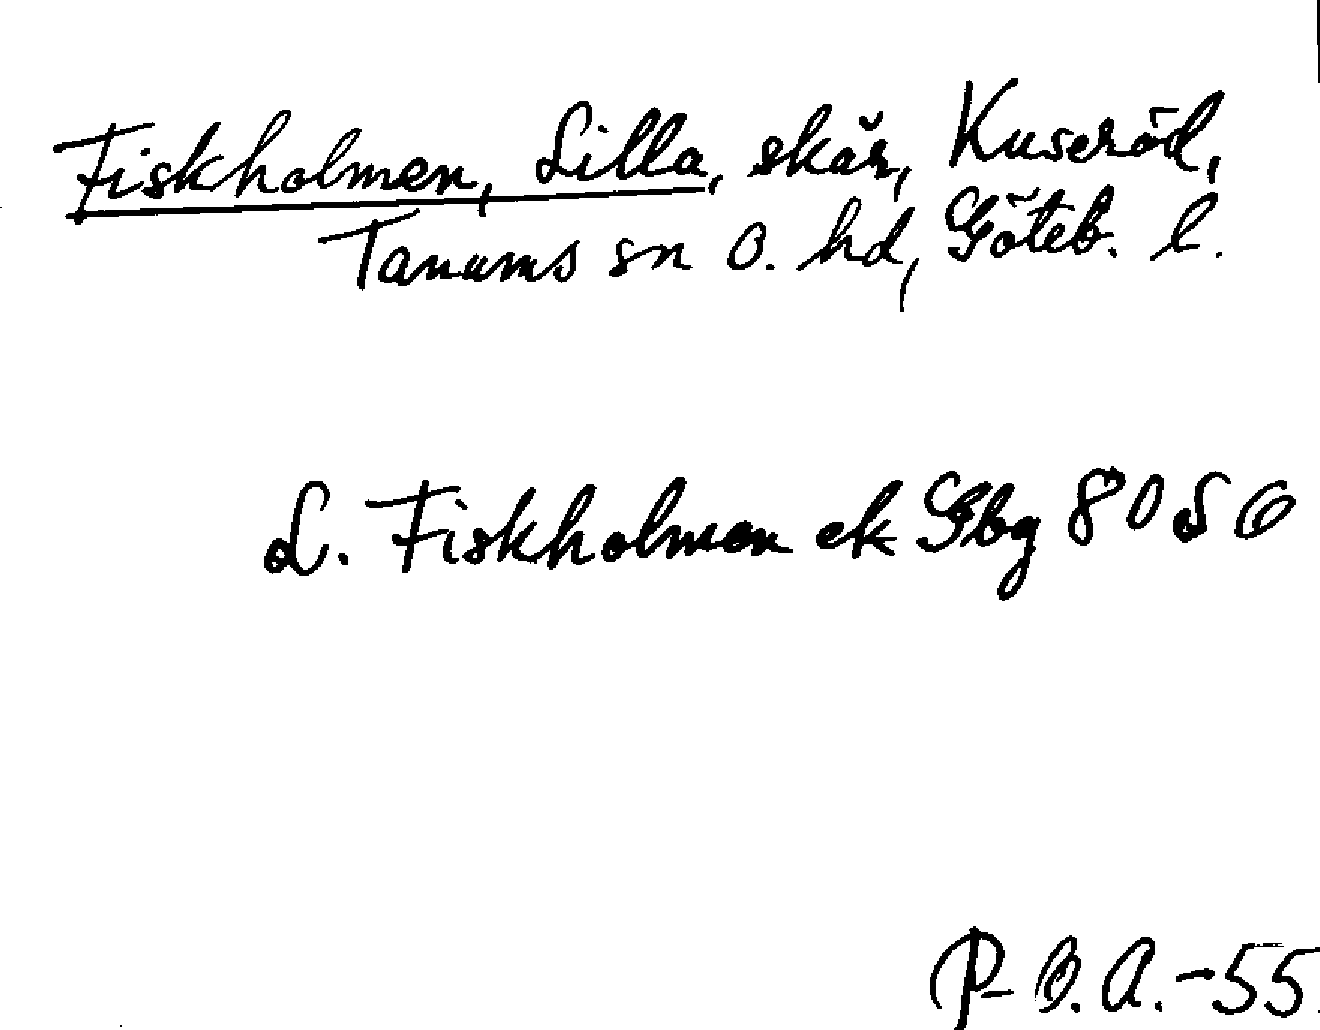 Fiskholmen, Lilla, skär, Kuseröd,
Tanums sn o. hd, Göteb. l.
L. Fiskholmen ek Gbg 8056
P. B. A. -55.